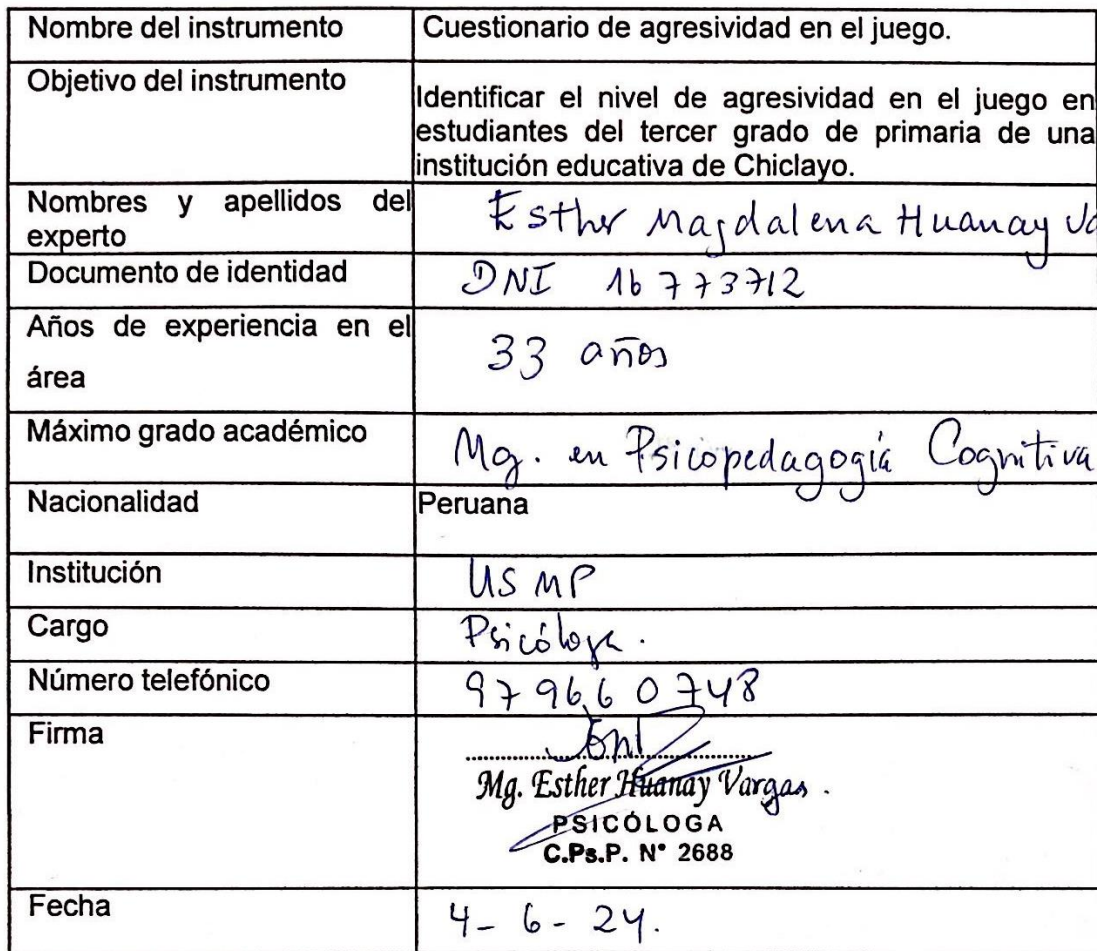 Nombre del instrumento
Cuestionario de agresividad en el juego.
Objetivo del instrumento
Identificar el nivel de agresividad en el juego en
estudiantes del tercer grado de primaria de una
institución educativa de Chiclayo.
Nombres y apellidos del
experto
Esther Magdalena Huanay Va
Documento de identidad
DNI 16773712
Años de experiencia en el
área
33 años
Máximo grado académico
Mg. en Psicopedagogía Cognitiva
Nacionalidad
Peruana
Institución
USMP
Cargo
Psicóloga.
Número telefónico
979660748
Firma
Mg. Esther Huanay Vargas.
PSICÓLOGA
C.Ps.P. N° 2688
Fecha
4-6-24.